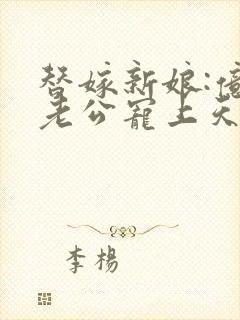 替嫁新娘:億
老公寵上天
李楊